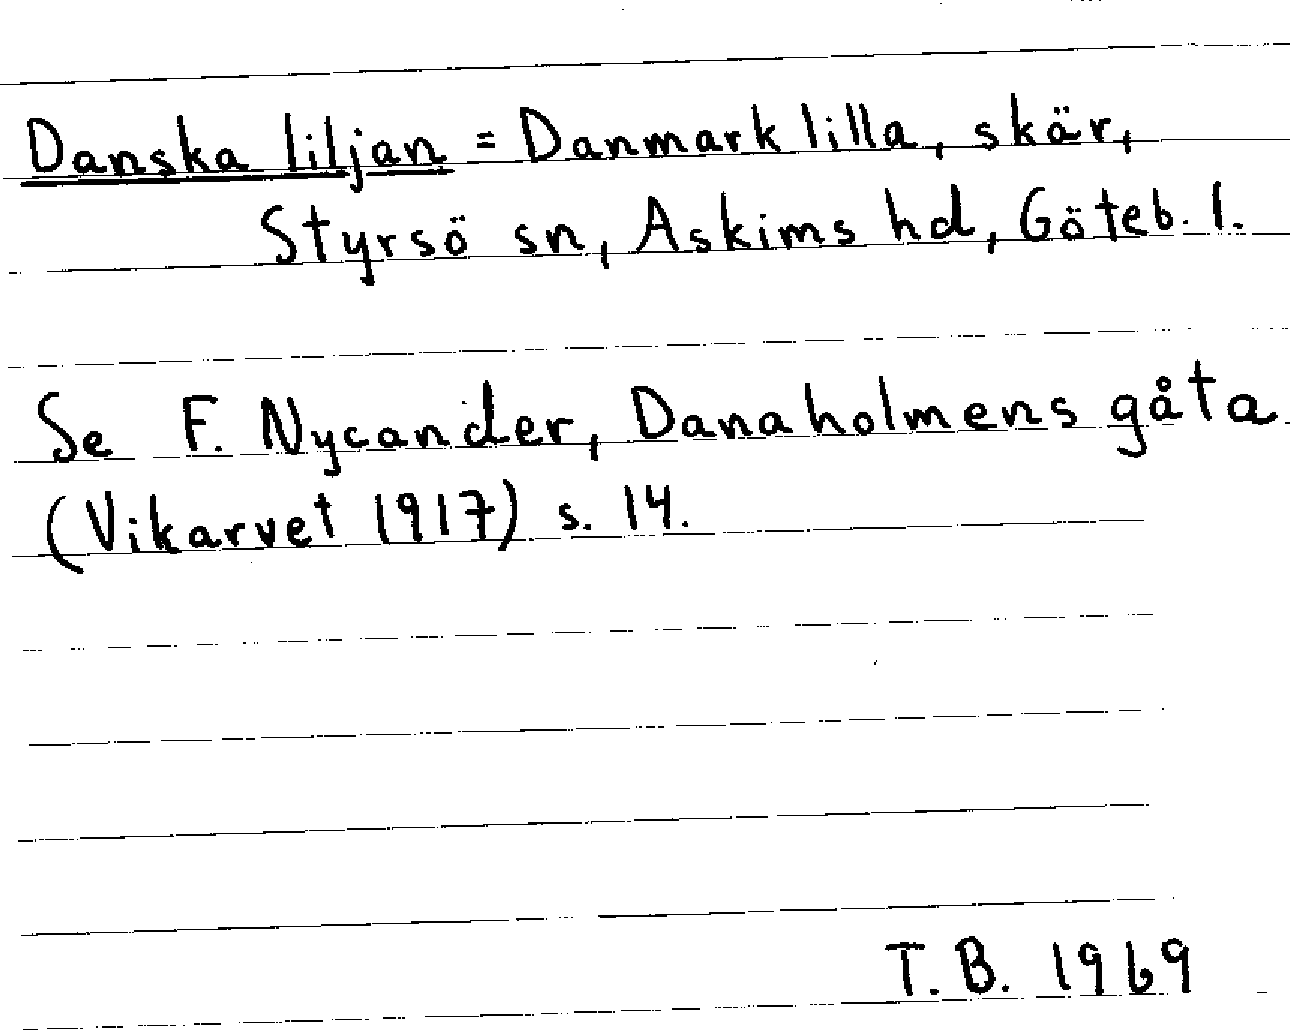 Danska liljan = Danmark lilla, skär,
Styrsö sn, Askims hd, Göteb. l.
Se F. Nycander, Danaholmens gåta
(Vikarvet 1917) s. 14.
T. B. 1969